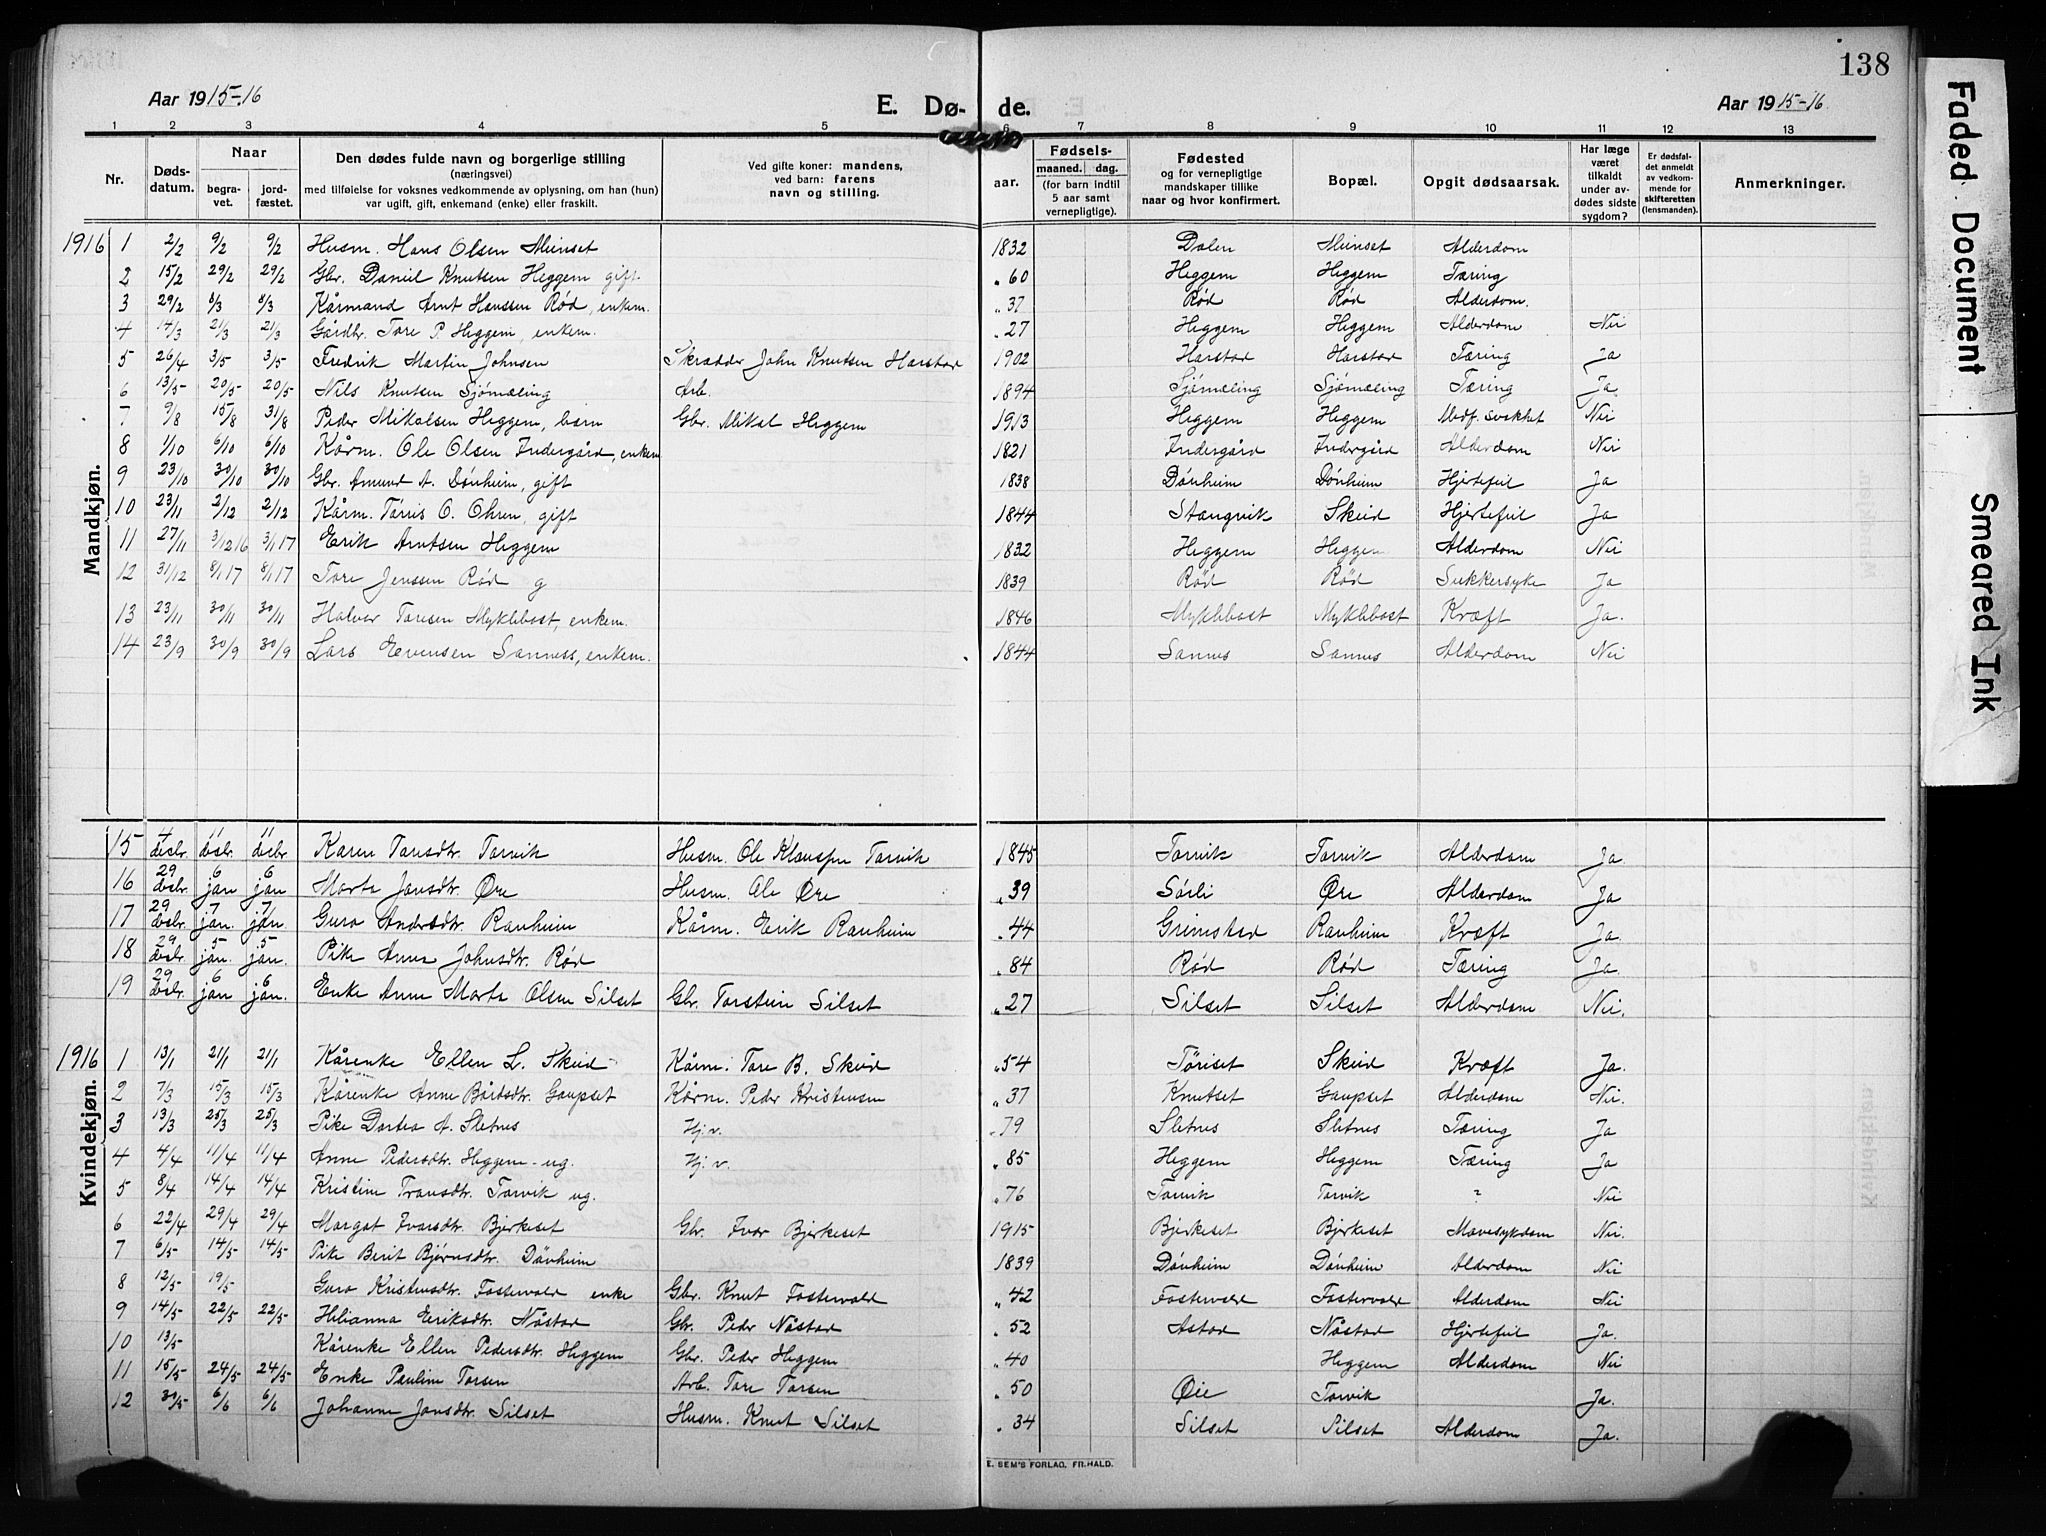 138
Aar 1915-16
E. Dø- de.
Aar 1915-16.
1 2 3 4 5 6 7 8 9 10 11 12 13
Nr. Døds-datum. Naar begra-vet. jord-fæstet. Den dødes fulde navn og borgerlige stilling (næringsvei) med tilføielse for voksnes vedkommende av oplysning, om han (hun) var ugift, gift, enkemand (enke) eller fraskilt. Ved gifte koner: mandens, ved barn: farens navn og stilling. Fødsels- aar. maaned. dag. (for barn indtil 5 aar samt vernepligtige). Fødested og for vernepligtige mandskaper tillike naar og hvor konfirmert. Bopæl. Opgit dødsaarsak. Har læge været tilkaldt under av-dødes sidste sygdom? Er dødsfal-det anmeldt av vedkom-mende for skifteretten (lensmanden). Anmerkninger.
Mandkjøn.
1916 1 2/2 9/2 9/2 Husm. Hans Olsen Meinset 1832 Dalen Meinset Alderdom
2 15/2 29/2 29/2 Gbr. Daniel Knutsen Heggem gift „ 60 Heggem Heggem Tæring
3 29/2 8/3 8/3 Kårmand Arnt Hanssen Rød, enkem. „ 37 Rød Rød Alderdom.
4 14/3 21/3 21/3 Gårdbr. Tore P. Heggem, enkem. „ 27 Heggem Heggem Alderdom Nei
5 26/4 3/5 3/5 Fredrik Martin Johnsen Skrædder John Knutsen Harstad 1902 Harstad Harstad Tæring Ja
6 13/5 20/5 20/5 Nils Knutsen Sjømæling Arb. 1894 Sjømæling Sjømæling Tæring Ja
7 9/8 15/8 31/8 Peder Mikalsen Heggem, barn Gbr. Mikal Heggem 1913 Heggem Heggem Medf. svakhet Nei
8 1/10 6/10 6/10 Kårm. Ole Olsen Indergård, enkem 1821 Indergård Indergård Alderdom Nei
9 23/10 30/10 30/10 Gbr. Amund A. Dønheim, gift 1838 Dønheim Dønheim Hjertefeil Ja
10 23/11 2/12 2/12 Kårm. Tørris O. Ohren, gift 1844 Stangvik Skeid Hjertefeil Ja
11 27/11 3/12 16 3/1 17 Erik Arntsen Heggem 1832 Heggem Heggem Alderdom Nei
12 31/12 8/1 17 8/1 17 Tore Jenssen Rød g 1839 Rød Rød Sukkersyke Ja
13 23/11 30/11 30/11 Halvor Toresen Myklebost, enkem. 1846 Myklebost Myklebost Kræft Ja.
14 23/9 30/9 30/9 Lars Evensen Sanness, enkem. 1844 Sannes Sannes Alderdom Nei
Kvindekjøn.
15 4 desbr. 11 desbr. 11 desbr Karen Toresdtr. Torvik Husm. Ole Klaussen Torvik 1845 Torvik Torvik Alderdom Ja.
16 29 desbr. 6 jan 6 jan Marta Jonsdtr. Øre Husm. Ole Øre „ 39 Sørli Øre Alderdom Ja
17 29 desbr. 7 jan. 7 jan Guro Andersdtr. Ranheim Kårm. Erik Ranheim „ 44 Grimstad Ranheim Kræft Ja.
18 29 desbr. 5 jan. 5 jan. Pike Anna Johnsdtr. Rød „ 84 Rød Rød Tæring Ja.
19 29 desbr. 6 jan 6 jan. Enke Anne Marta Olsen Silset Gbr. Torstein Silset „ 27 Silset Silset Alderdom Nei.
1916 1 13/1 21/1 21/1 Kårenke Ellen L. Skeid Kårm. Tore B. Skeid „ 54 Tøriset Skeid Kræft Ja.
2 7/3 15/3 15/3 Kårenke Anne Bårdsdtr. Gaupset Kårm. Peder Kristensen „ 37 Knutset Gaupset Alderdom Nei.
3 13/3 25/3 25/3 Pike Dortea A. Sletnes Hj.v. „ 79 Sletnes Sletnes Tæring Ja
4 4/4 11/4 11/4 Anne Pedersdtr. Heggem - ug. Hj. v. „ 85 Heggem Heggem Tæring Ja
5 8/4 14/4 14/4 Kristine Tronsdtr. Torvik ug. „ 76 Torvik Torvik ? Nei
6 22/4 29/4 29/4 Margot Ivarsdtr. Bjerkeset Gbr. Ivar Bjerkeset 1915 Bjerkeset Bjerkeset Mavesykdom Nei.
7 6/5 14/5 14/5 Pike Berit Bjørnsdtr. Dønheim 1839 Dønheim Dønheim Alderdom Nei
8 12/5 19/5 Guro Kristensdtr. Fostervold enke Gbr. Knut Fostervold „ 42 Fostervold Fostervold Alderdom Nei
9 14/5 22/5 22/5 Helianna Eriksdtr. Nåstad Gbr. Peder Nåstad „ 52 Astad Nåstad Hjertefeil Ja.
10 13/5 Kårenke Ellen Pedersdtr. Heggem Gbr. Peder Heggem „ 40 Heggem Alderdom Nei
11 15/5 24/5 24/5 Enke Pauline Torsen Arb. Tore Torsen „ 50 Øie Torvik Ja.
12 30/5 6/6 6/6 Johanne Jonsdtr. Silset Husm. Knut Silset „ 34 Silset Silset Alderdom Ja.
E. SEM'S FORLAG, FR.HALD.
Faded Document
Smeared Ink